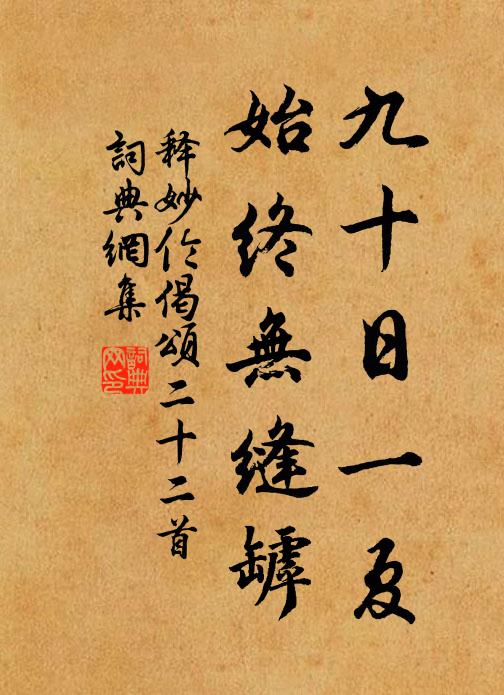 九十日一夏
始終無縫罅
释妙伦偈頌二十二首
詞典網集
詞典網印